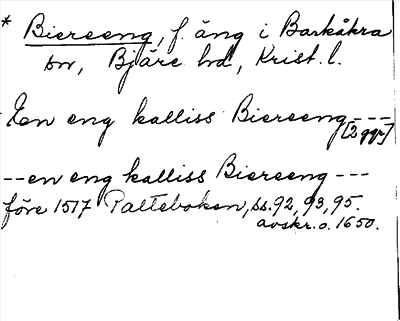 * Biereeng, f. äng i Barkåkra
sn, Bjäre hd, Krist. l.
En eng kalliss Biereeng ---
[2 ggr]
-- en eng kalliss Biereeng ---
före 1517 Palteboken, ss. 92, 93, 95.
avskr. o. 1650.